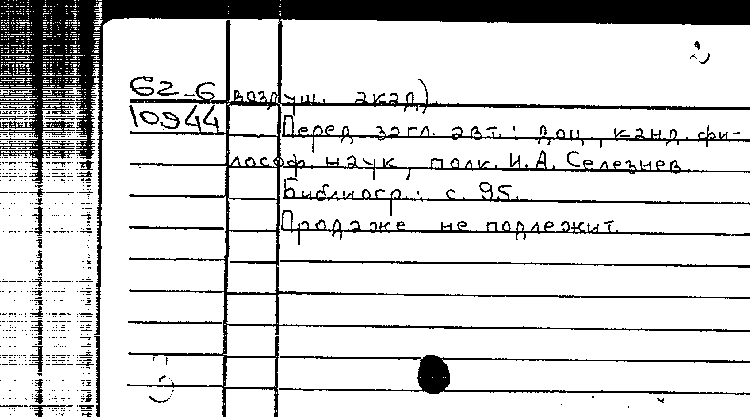 2
62-6 воздуш. акад.)
10944 Перед загл. авт.: доц., канд. фи-
лософ. наук, полк. И. А. Селезнев.
Библиогр.: с. 95.
Продаже не подлежит.
3